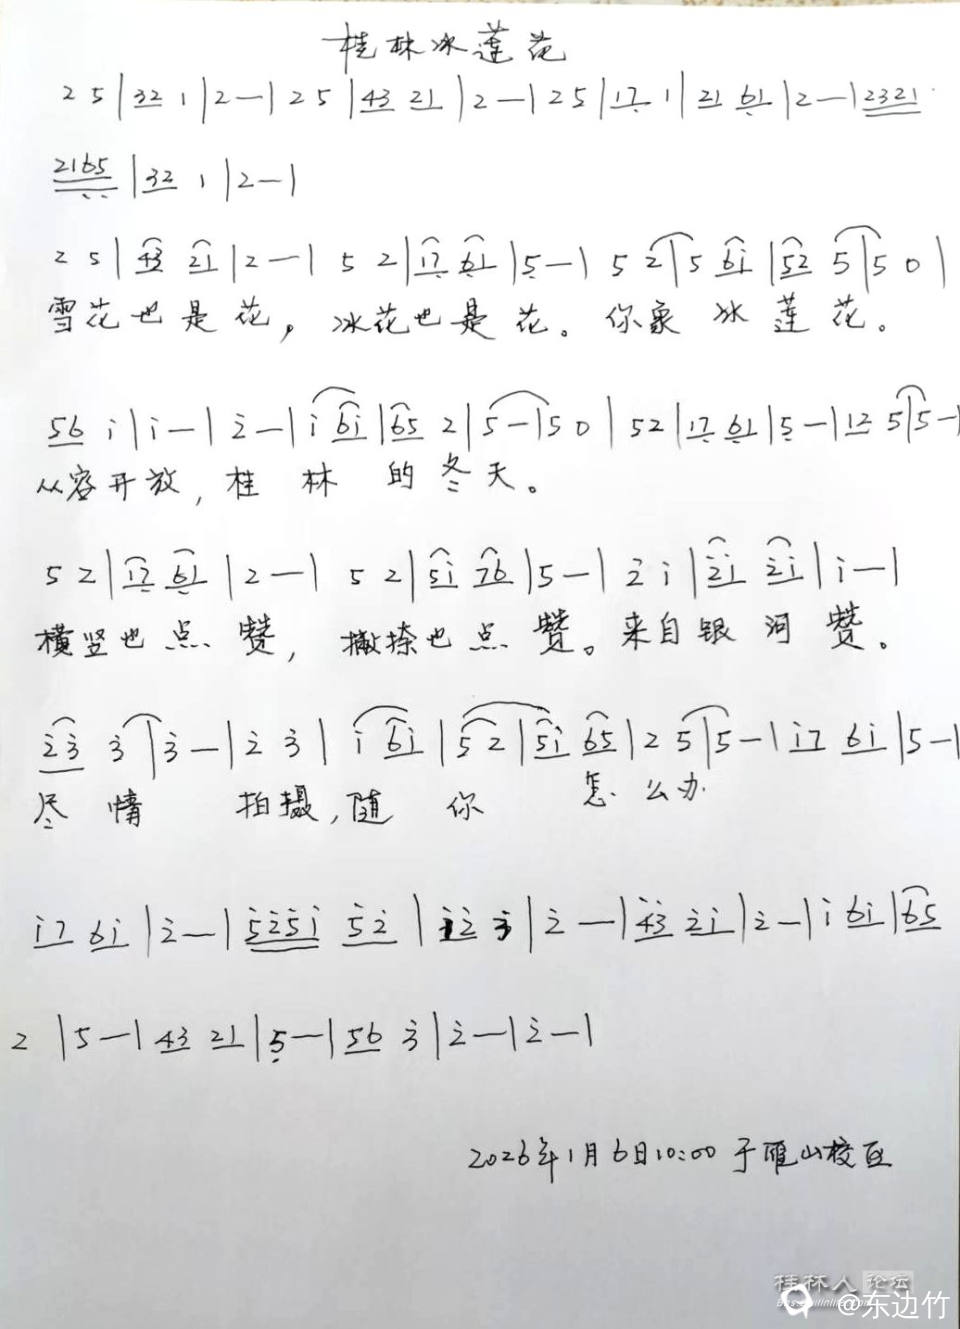 桂林冰莲花
2 5 | 32 1 | 2 — | 2 5 | 43 21 | 2 — | 2 5 | 17 1 | 21 61 | 2 — | 2321
2165 | 32 1 | 2 — |
2 5 | 43 21 | 2 — | 5 2 | 17 61 | 5 — | 5 2 | 5 6i | 52 5 | 5 0 |
雪花也是花，冰花也是花。你象冰莲花。
56 i | i — | 2̇ — | i 6i | 65 2 | 5 — | 5 0 | 52 | 17 61 | 5 — | 12 5 | 5 — |
从容开放，桂林的冬天。
5 2 | 17 61 | 2 — | 5 2 | 5i 76 | 5 — | 2̇ i | 2̇i 2̇i | i — |
横竖也点赞，撇捺也点赞。来自银河赞。
2̇3̇ 3̇ | 3̇ — | 2̇ 3̇ | i 6i | 5 2 | 5i 65 | 2 5 | 5 — | i7 6i | 5 — |
尽情拍摄，随你怎么办.
i7 6i | 2̇ — | 5̇2̇5̇i 5̇2̇ | i2̇ 3̇ | 2̇ — | 4̇3̇ 2̇i | 2̇ — | i 6i | 65
2 | 5 — | 43 21 | 5 — | 56 3̇ | 2̇ — | 2̇ — |
2026年1月6日10:00于雁山校区
桂林人论坛
@东边竹